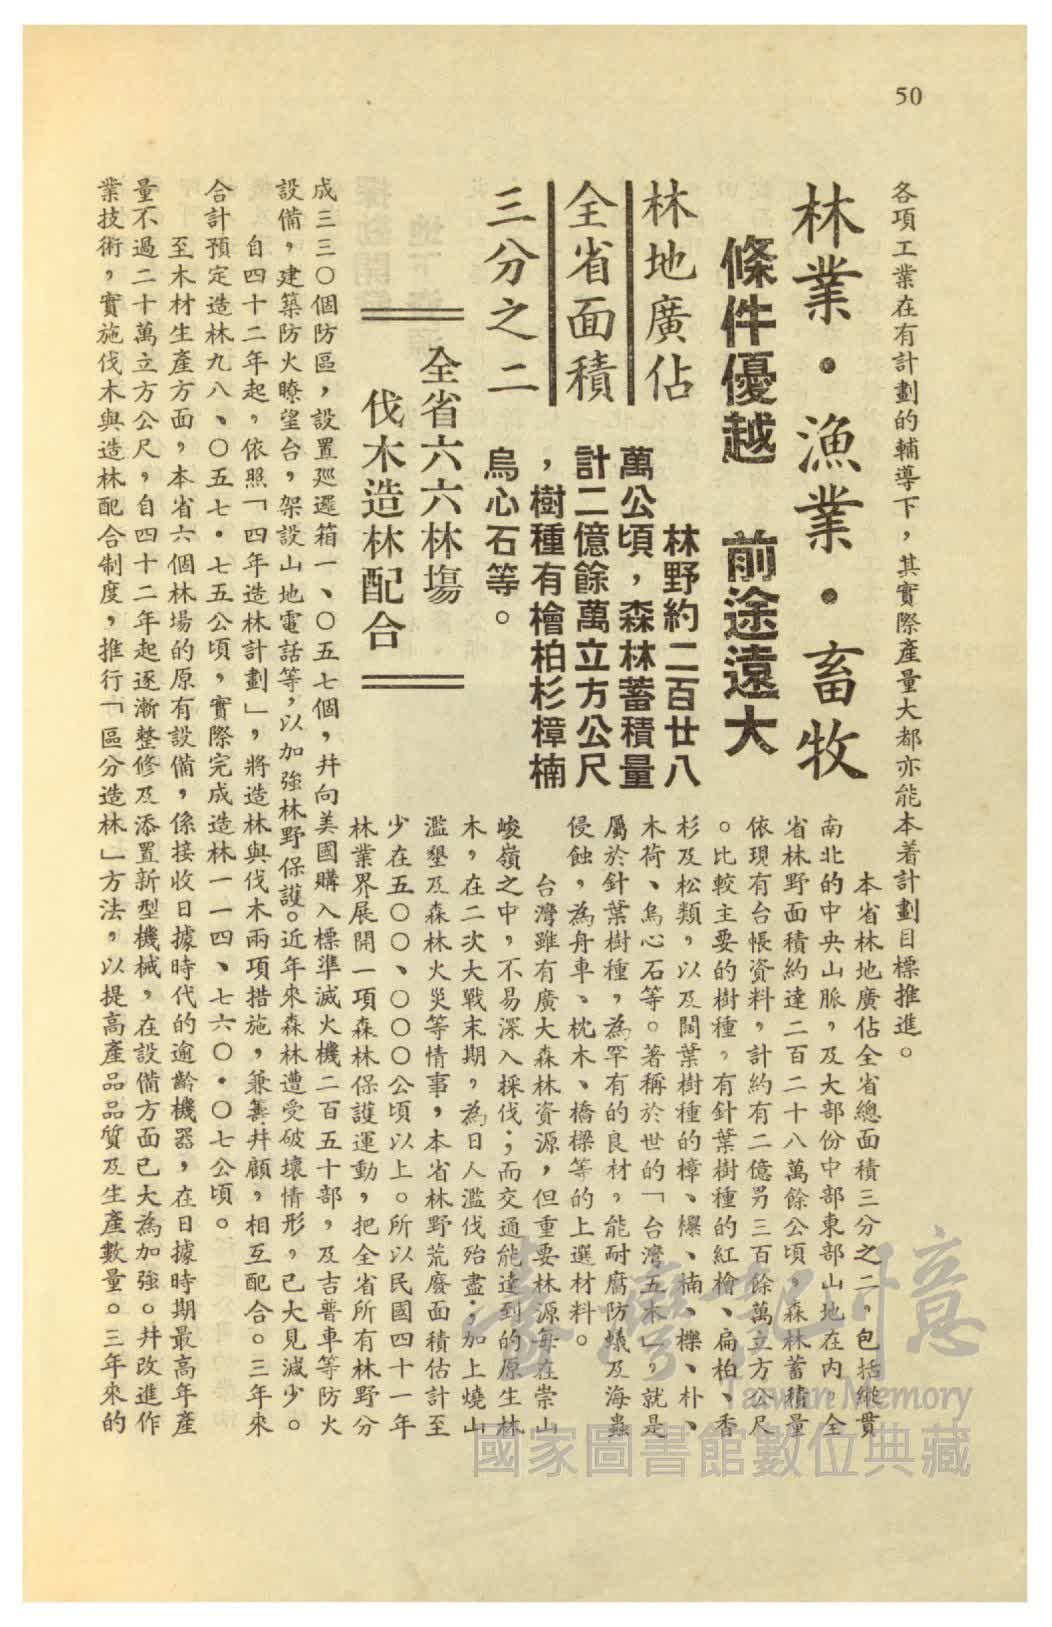 50
各項工業在有計劃的輔導下，其實際產量大都亦能本着計劃目標推進。
林業・漁業・畜牧
條件優越　前途遠大
林地廣佔
全省面積
三分之二
林野約二百廿八
萬公頃，森林蓄積量
計二億餘萬立方公尺
，樹種有檜柏杉樟楠
烏心石等。
全省六六林塲
伐木造林配合
本省林地廣佔全省總面積三分之二，包括縱貫
南北的中央山脈，及大部份中部東部山地在內。全
省林野面積約達二百二十八萬餘公頃，森林蓄積量
依現有台帳資料，計約有二億另三百餘萬立方公尺
。比較主要的樹種，有針葉樹種的紅檜、扁柏、香
杉及松類，以及闊葉樹種的樟、櫸、楠、櫟、朴、
木荷、烏心石等。著稱於世的「台灣五木」，就是
屬於針葉樹種，為罕有的良材，能耐腐防蟻及海蟲
侵蝕，為舟車、枕木、橋樑等的上選材料。
台灣雖有廣大森林資源，但重要林源每在崇山
峻嶺之中，不易深入採伐；而交通能達到的原生林
木，在二次大戰末期，為日人濫伐殆盡；加上燒山
濫墾及森林火災等情事，本省林野荒廢面積估計至
少在五〇〇、〇〇〇公頃以上。所以民國四十一年
林業界展開一項森林保護運動，把全省所有林野分
成三三〇個防區，設置廵邏箱一、〇五七個，幷向美國購入標準滅火機二百五十部，及吉普車等防火
設備，建築防火瞭望台，架設山地電話等，以加強林野保護。近年來森林遭受破壞情形，已大見減少。
自四十二年起，依照「四年造林計劃」，將造林與伐木兩項措施，兼籌幷顧，相互配合。三年來
合計預定造林九八、〇五七・七五公頃，實際完成造林一一四、七六〇・〇七公頃。
至木材生產方面，本省六個林場的原有設備，係接收日據時代的逾齡機器，在日據時期最高年產
量不過二十萬立方公尺，自四十二年起逐漸整修及添置新型機械，在設備方面已大為加強。幷改進作
業技術，實施伐木與造林配合制度，推行「區分造林」方法，以提高產品品質及生產數量。三年來的
臺灣記憶
Taiwan Memory
國家圖書館數位典藏